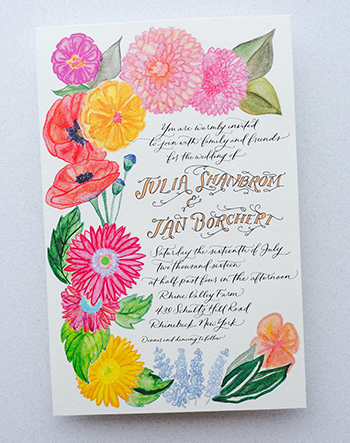 You are warmly invited
to join with family and friends
for the wedding of
JULIA SHAMBROM
&
JAN BORCHERT
Saturday the sixteenth of July
two thousand sixteen
at half past four in the afternoon
Rhine Valley Farm
430 Schultz Hill Road
Rhinebeck New York
Dinner and dancing to follow